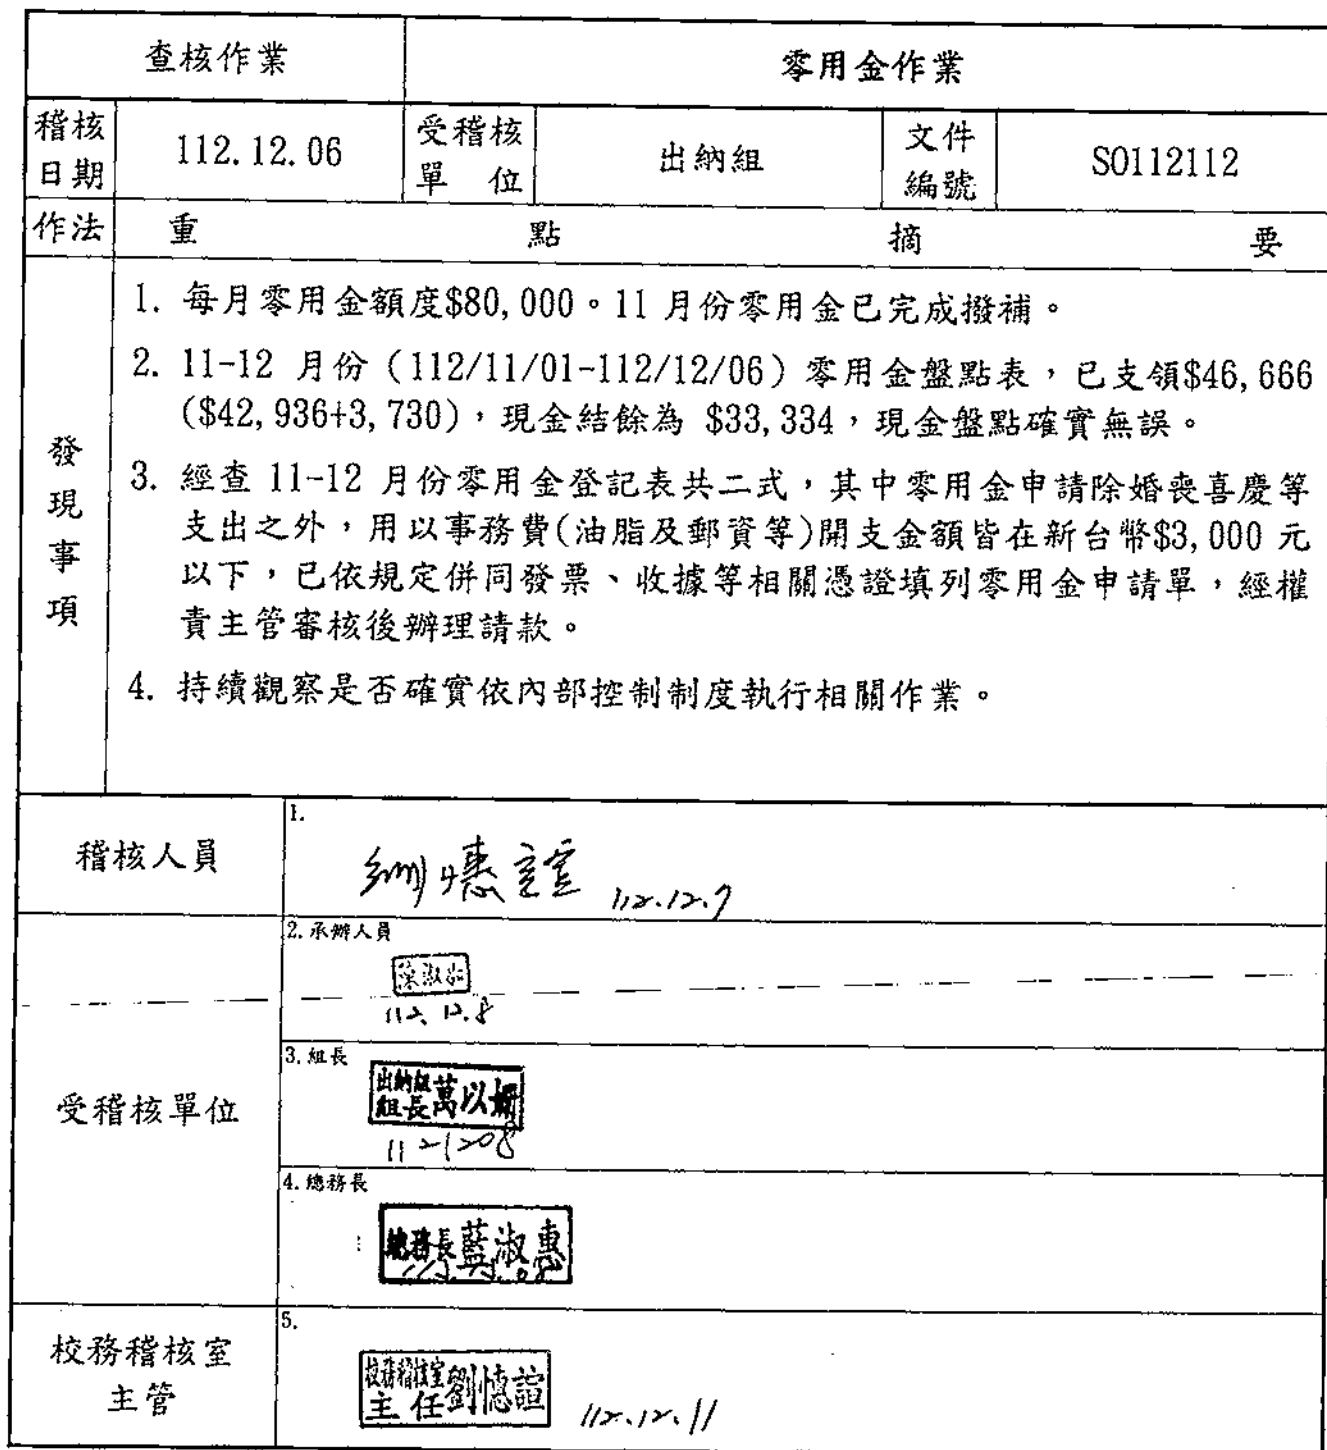 查核作業 零用金作業
稽核日期 112.12.06 受稽核單位 出納組 文件編號 S0112112
作法 重點摘要
發現事項
1. 每月零用金額度$80,000。11 月份零用金已完成撥補。
2. 11-12 月份（112/11/01-112/12/06）零用金盤點表，已支領$46,666
($42,936+3,730)，現金結餘為 $33,334，現金盤點確實無誤。
3. 經查 11-12 月份零用金登記表共二式，其中零用金申請除婚喪喜慶等
支出之外，用以事務費(油脂及郵資等)開支金額皆在新台幣$3,000 元
以下，已依規定併同發票、收據等相關憑證填列零用金申請單，經權
責主管審核後辦理請款。
4. 持續觀察是否確實依內部控制制度執行相關作業。
稽核人員
1.
112.12.7
受稽核單位
2.承辦人員
112.12.8
3.組長
出納組
組長萬以
1121208
4.總務長
總務長藍淑惠
校務稽核室
主管
5.
校務稽核室
主任劉憓諠
112.12.11